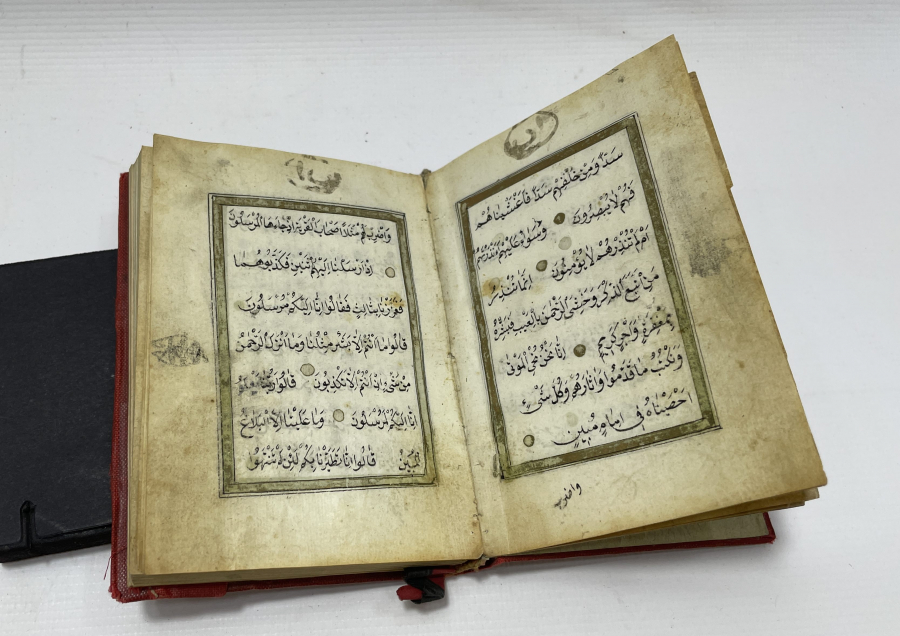 سَدًّا وَمِنْ خَلْفِهِمْ سَدًّا فَاَغْشَيْنَاهُمْ
فَهُمْ لَا يُبْصِرُونَ وَسَوَاءٌ عَلَيْهِمْ ءَاَنْذَرْتَهُمْ
اَمْ لَمْ تُنْذِرْهُمْ لَا يُؤْمِنُونَ اِنَّمَا تُنْذِرُ
مَنِ اتَّبَعَ الذِّكْرَ وَخَشِىَ الرَّحْمٰنَ بِالْغَيْبِ فَبَشِّرْهُ
بِمَغْفِرَةٍ وَاَجْرٍ كَرِيمٍ اِنَّا نَحْنُ نُحْىِ الْمَوْتٰى
وَنَكْتُبُ مَا قَدَّمُوا وَاٰثَارَهُمْ وَكُلَّ شَىْءٍ
اَحْصَيْنَاهُ فِى اِمَامٍ مُبِينٍ
واضرب
وَاضْرِبْ لَهُمْ مَثَلًا اَصْحَابَ الْقَرْيَةِ اِذْ جَاءَهَا الْمُرْسَلُونَ
اِذْ اَرْسَلْنَا اِلَيْهِمُ اثْنَيْنِ فَكَذَّبُوهُمَا
فَعَزَّزْنَا بِثَالِثٍ فَقَالُوا اِنَّا اِلَيْكُمْ مُرْسَلُونَ
قَالُوا مَا اَنْتُمْ اِلَّا بَشَرٌ مِثْلُنَا وَمَا اَنْزَلَ الرَّحْمٰنُ
مِنْ شَىْءٍ اِنْ اَنْتُمْ اِلَّا تَكْذِبُونَ قَالُوا رَبُّنَا يَعْلَمُ
اِنَّا اِلَيْكُمْ لَمُرْسَلُونَ وَمَا عَلَيْنَا اِلَّا الْبَلَاغُ
الْمُبِينُ قَالُوا اِنَّا تَطَيَّرْنَا بِكُمْ لَئِنْ لَمْ تَنْتَهُوا